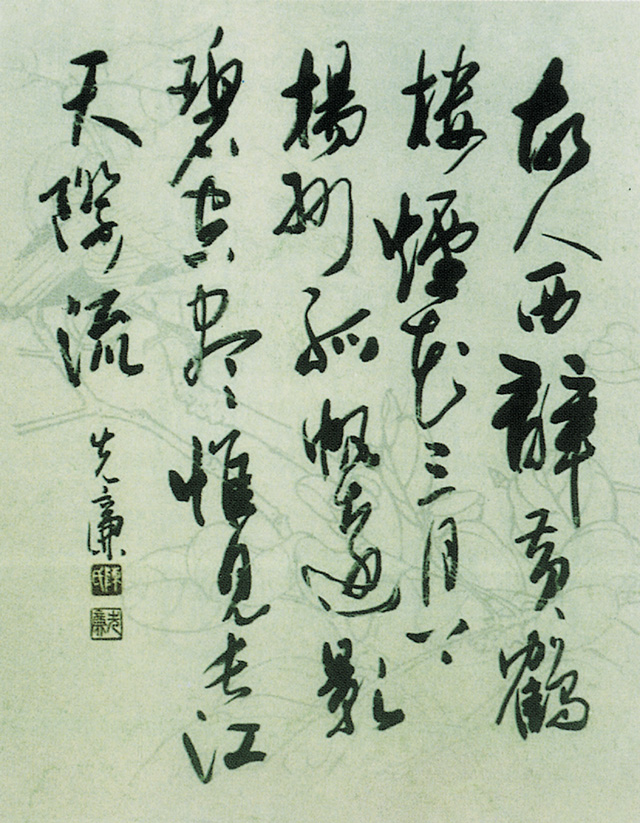 故人西辭黄鶴
樓煙花三月下
楊州孤帆遠影
碧空盡惟見長江
天際流
先廉
陳氏
先廉